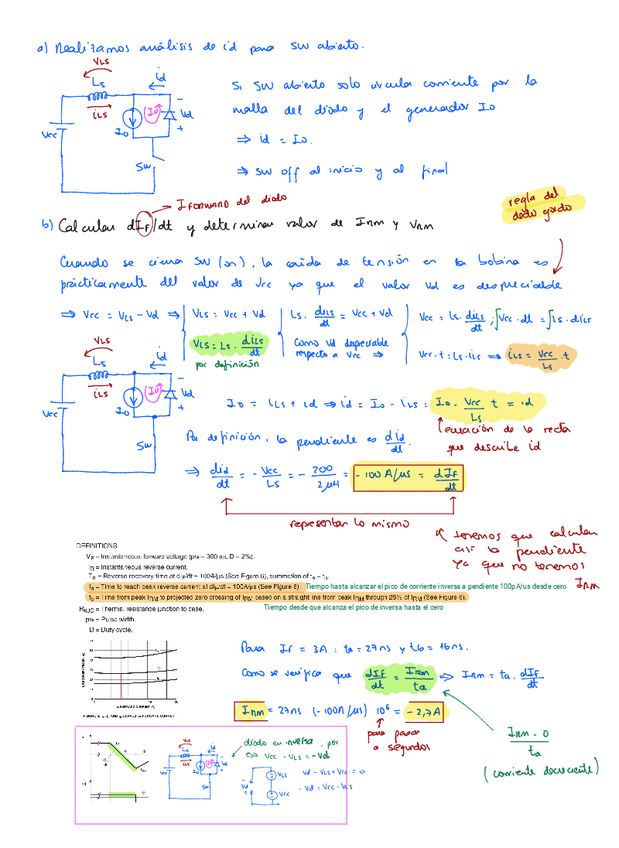 a) Realizamos análisis de id para SW abierto.
VLS
Ls
id
iLS
Vcc
Io
Io
Vd
SW
Si SW abierto solo circula corriente por la
malla del diodo y el generador Io
⇒ id = Io.
⇒ SW off al inicio y al final
IFORWARD del diodo
regla del
dedo gordo
b) Calcular dIF/dt y determinar valor de IRM y VRM
Cuando se cierra SW (on), la caída de tensión en la bobina es
prácticamente del valor de Vcc ya que el valor Vd es despreciable
⇒ Vcc = VLS - Vd ⇒
VLS = Vcc + Vd
VLS = Ls · diLS/dt
por definición
Ls · diLS/dt = Vcc + Vd
Como Vd despreciable
respecto a Vcc ⇒
Vcc = Ls · diLS/dt ; ∫Vcc · dt = ∫Ls · diLS
Vcc · t = Ls · iLS ⇒ iLS = Vcc/Ls · t
VLS
Ls
id
iLS
Vcc
Io
Io
Vd
SW
Io = iLS + id ⇒ id = Io - iLS = Io - Vcc/Ls t = id
ecuación de la recta
que describe id
Por definición, la pendiente es did/dt.
⇒ did/dt = - Vcc/Ls = - 200/2µH = - 100 A/µs = dIF/dt
representan lo mismo
tenemos que calcular
así la pendiente
ya que no tenemos
IRM
DEFINITIONS
VF = Instantaneous forward voltage (pw = 300 µs, D = 2%).
IR = Instantaneous reverse current.
ta = Time to reach peak reverse current at dIF/dt = 100A/µs (See Figure 6). Tiempo hasta alcanzar el pico de corriente inversa a pendiente 100pA/us desde cero
tb = Time from peak IRM to projected zero crossing of IRM based on a straight line from peak IRM through 25% of IRM (See Figure 6).
RθJC = Thermal resistance junction to case. Tiempo desde que alcanza el pico de inversa hasta el cero
pw = Pulse width.
D = Duty cycle.
Para IF = 3A : ta = 27ns y tb = 16ns.
Como se verifica que dIF/dt = IRM/ta ⇒ IRM = ta · dIF/dt
IRM = 27ns (-100A/µs) 10⁶ = -2,7A
para pasar
a segundos
IRM - 0/ta
(corriente decreciente)
diodo en inversa, por
eso Vcc - VLS = -Vd
VLS
Ls
Vcc
SW
Vd
VLS
Vcc
Vd - VLS + Vcc = 0
- Vd = Vcc - VLS